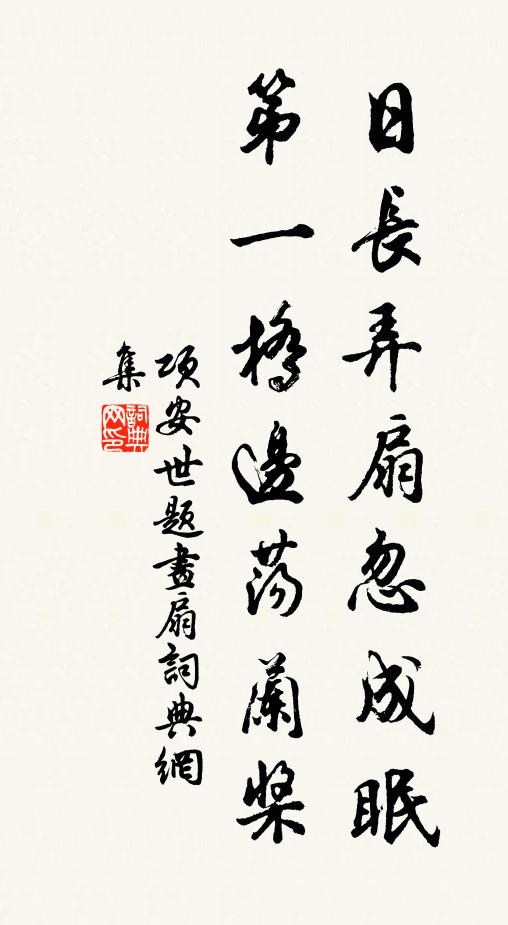 日長弄扇忽成眠
第一橋邊荡蘭槳
项安世题畫扇詞典網
集
詞典网印